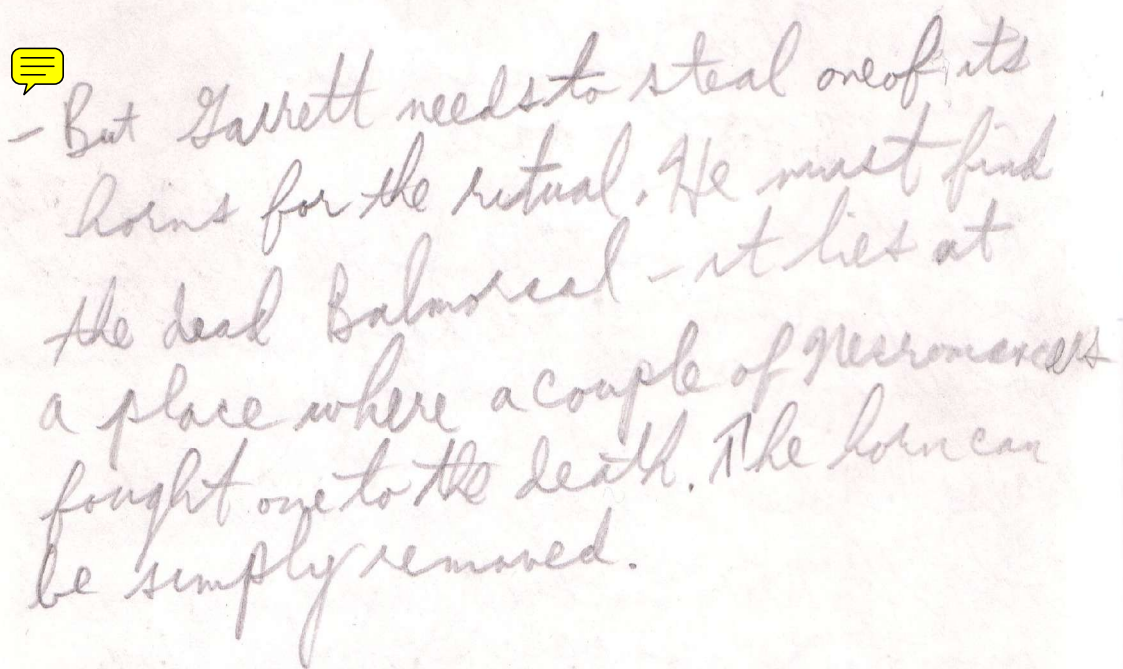 - But Garrett needs to steal one of its
horns for the ritual. He must find
the dead Balmoreal - it lies at
a place where a couple of Necromancers
fought one to the death. The horn can
be simply removed.